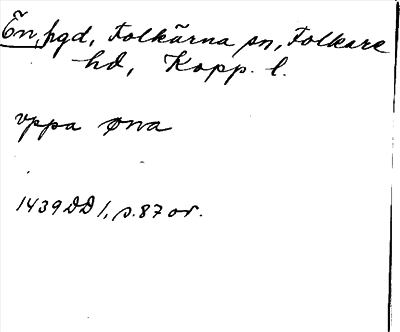 Ön, hgd, Folkärna sn, Folkare
hd, Kopp. l.
vppa øna
1439 DD 1, s. 87 or.